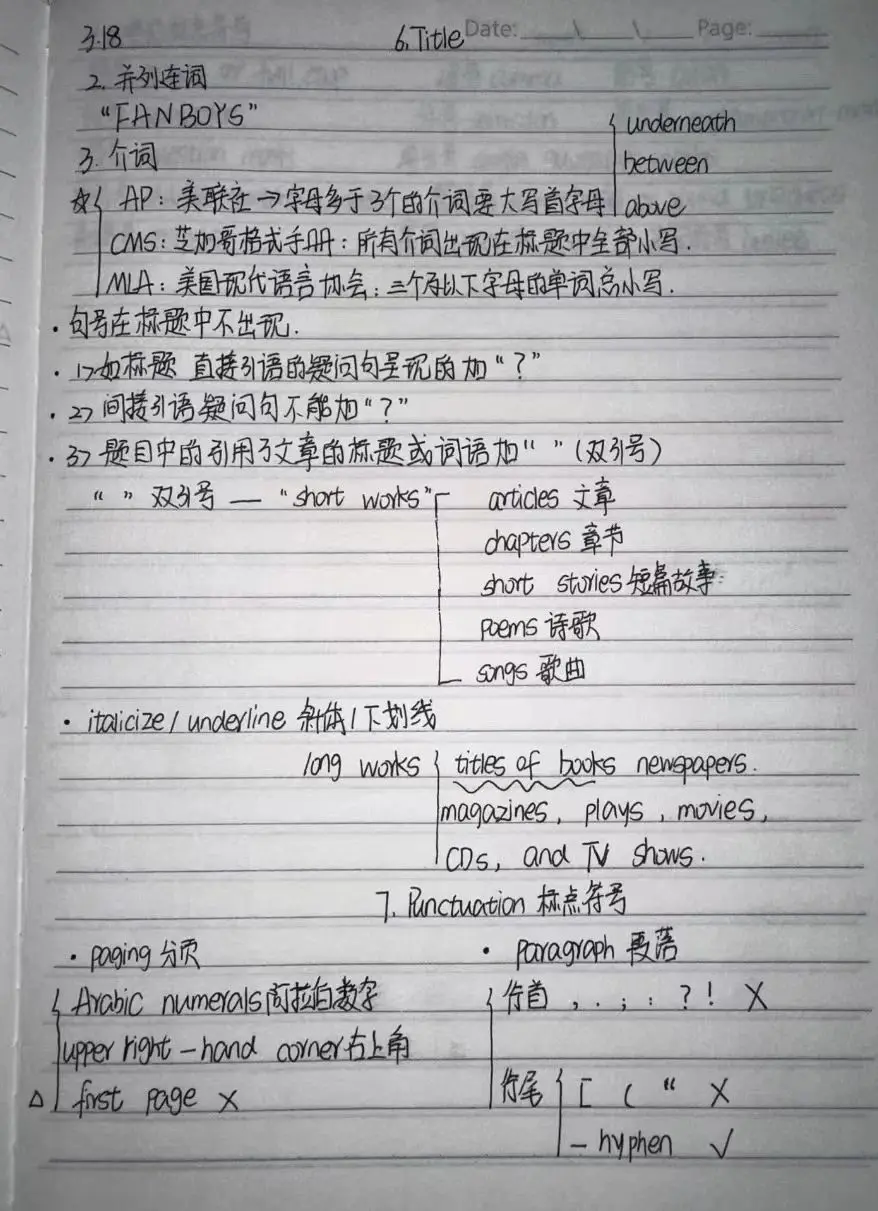 3.18 6.Title Date: \ \ Page:
2. 并列连词
"FANBOYS"
underneath
3. 介词
between
☆ AP：美联社→字母多于3个的介词要大写首字母
above
CMS：芝加哥格式手册：所有介词出现在标题中全部小写.
MLA：美国现代语言协会：三个及以下字母的单词总小写.
·句号在标题中不出现.
·1>如标题 直接引语的疑问句呈现的加"?"
·2>间接引语疑问句不能加"?"
·3>题目中的引用了文章的标题或词语加" "(双引号)
" "双引号 — "short works"
articles 文章
chapters 章节
short stories 短篇故事
poems 诗歌
songs 歌曲
·italicize/underline 斜体/下划线
long works titles of books newspapers.
magazines, plays, movies,
CDs, and TV shows.
7. Punctuation 标点符号
·paging 分页
·paragraph 段落
Arabic numerals 阿拉伯数字
行首 , . ; : ? ! X
upper right-hand corner 右上角
△ first page X
行尾 [ ( " X
- hyphen √